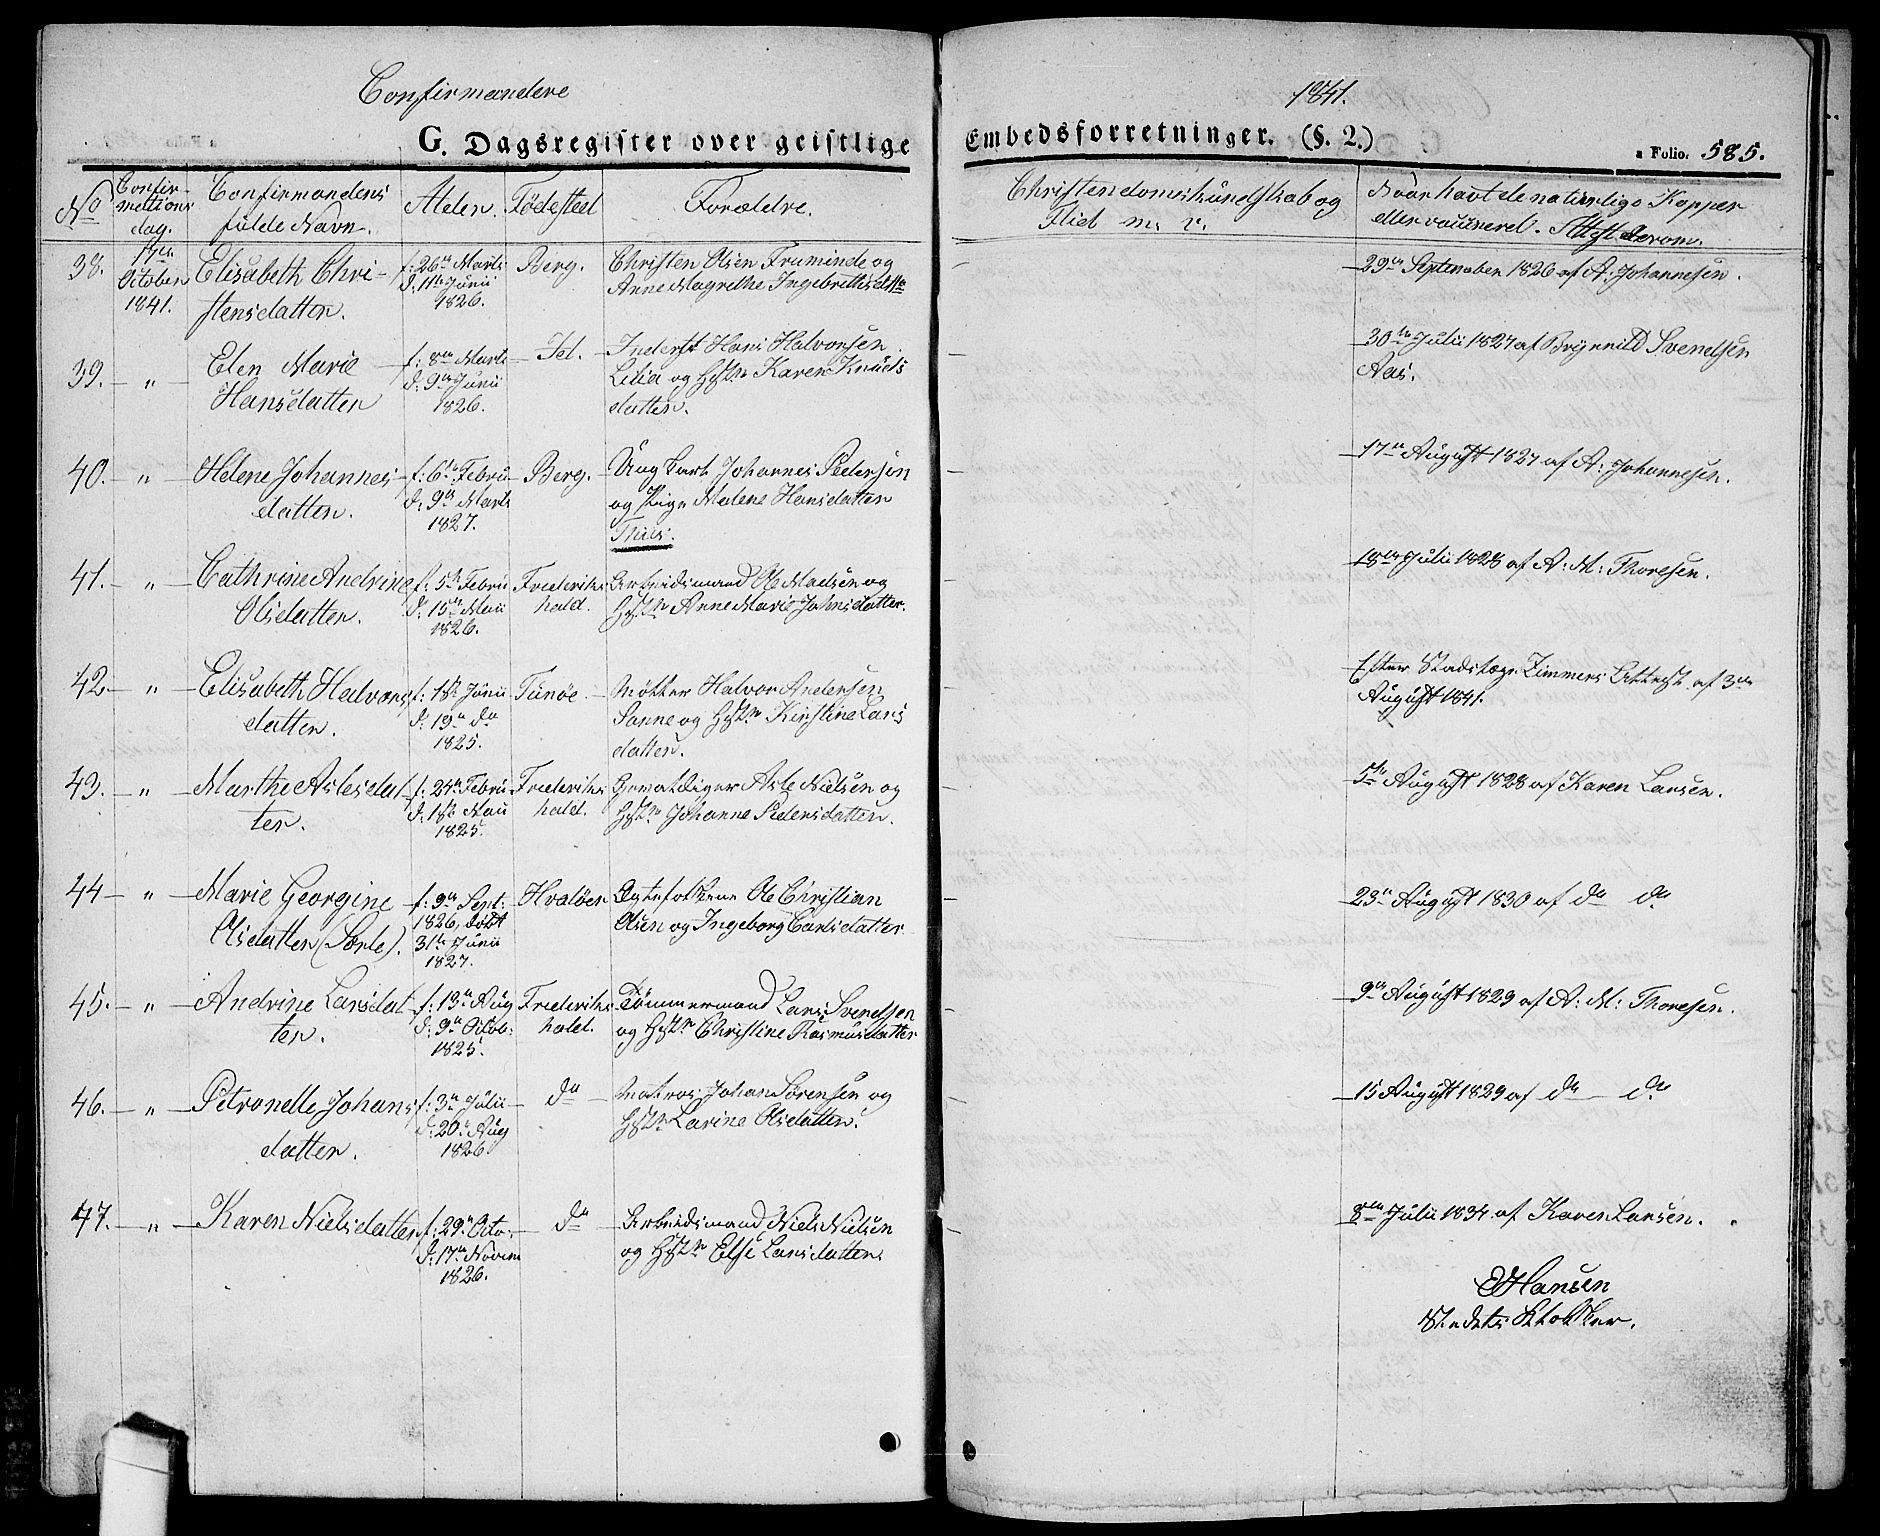 Confirmandere
1841.
G. Dagsregister over geistlige
Embedsforretninger. (§. 2.)
a Folio. 585.
No
Confir-
mations
dag.
Confirmandens
fulde Navn.
Alder.
Födested
Forældre.
Christendomskundskab og
Flid m. v.
Naar havt de naturlige Kopper
eller vaccinered. Attest derom.
38.
17de
October
1841.
Elisabeth Chri-
stensdatter.
f: 26de Marts
d: 11te Junii
1826.
Berg.
Christen Olsen Fruminde og
Anne Magrethe Ingebrethsdtte
29de September 1826 af A: Johannesen.
39. — „ —
Elen Marie
Hansdatter
f: 8de Marts
d: 9de Junii
1826.
Id.
Inderst Hans Halvorsen
Lilia og Hstr Karen Knuds
datter.
30te Julii 1827 af Brynnild Svendsen
Aas.
40. — „ —
Helene Johannes
datter.
f: 6te Febru
d: 9de Marts
1827.
Berg.
Ung Karl Johannes Pedersen
og Pige Malene Hansdatter
Thiis.
17de August 1827 af A: Johannesen.
41. — „ —
Cathrine Andrine
Olsdatter.
f. 5te Febru
d: 15de Maii
1826.
Frederiks
hald.
Arbeidsmand Ole Madsen og
Hstr Anne Marie Johnsdatter.
18de Julii 1828 af A: M: Thoresen.
42 — „ —
Elisabeth Halvors
datter.
f: 1ste Junii
d: 19de do
1825.
Tunöe.
Møller Halvor Andersen
Sanne og Hstr Kirstine Lars
datter.
Efter Stadslæge Zimmers Attest af 3de
August 1841.
43. — „ —
Marthe Aslesdat
ter.
f: 21de Febru
d: 1ste Maii
1825.
Frederiks
hald.
Gevaldiger Asle Nielsen og
Hstr Johanne Pedersdatter.
5te August 1828 af Karen Larsen.
44 — „ —
Marie Georgine
Olsdatter (Sørle).
f: 9de Sept:
1826, døbt
31te Junii
1827.
Hvaløer
Ægtefolkene Ole Christian
Olsen og Ingeborg Carlsdatter
23de August 1830 af do do
45. — „ —
Andrine Larsdat
ter.
f: 13de Aug
d: 9de Octob:
1825.
Frederiks
hald.
Tømmermand Lars Svendsen
og Hstr Christine Rasmusdatter
9de August 1829 af A: M: Thoresen.
46. — „ —
Petronelle Johans
datter.
f: 3de Julii
d: 20de Aug
1826
do
Matros Johan Sørensen og
Hstr Larine Olsdatter.
15 August 1829 af do — do
47. — „ —
Karen Nielsdatter
f: 29de Octo:
d: 17de Novem
1826.
do
Arbeidsmand Niels Nielsen
og Hstr Else Larsdatter
8de Julii 1834 af Karen Larsen.
Hansen
Stedets Klokker.